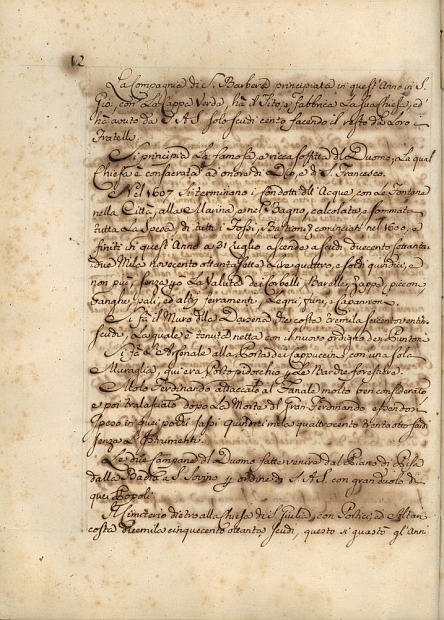 12
La Compagnia di S. Barbera principiata in quest'Anno in S.
Gio; con La Cappa Verde, ha il sito, e fabbrica La sua chiesa, ed
ha avuto da S A S solo scudi cento facendo il resto da Loro i
Fratelli.
Si principia La famosa, e ricca soffitta del Duomo, La qual
Chiesa è consacrata ad onore di Dio, e di S. Francesco.
Nel 1607 Si terminano i fondotti dell'Acque, con Le Fontane
nella Città, alla Marina, e nel Bagno, calcolata, e sommata
tutta La spesa di tutti i Fossi, Bastioni cominciati nel 1600, e
finiti in quest'Anno a 31 Luglio ascende a scudi duecento ottanta
due Mila novecento ottantasette Lire quattro, e soldi quindici, e
non più, senza La Valuta dei Corbelli, Barelle, Zappe, picconi
Vanghe, pali, ed altri ferramenti, Legni, funi, e Capannoni.
Si fà il Muro della Darsena che costa tremila
scudi, La quale è tenuta netta con il nuovo ordigno dei Puntoni
Si fà L'Arsenale alla Porta dei Cappuccini con una sola
Muraglia, qui era Porto pidocchio p Le Barche forestiere.
Molo Ferdinando attaccato al Fanale molto ben considerato
e poi tralasciato dopo La Morte del Gran Ferdinando
speso in quei pochi sassi quindici mila quattrocento trentaotto scudi
senza gl'Istrumenti.
Le due Campane di Duomo fatte venire dal Piano di Pisa
dalla Badia a S. Sovino p ordine di S A S con gran duolo di
quei Popoli
Il Cimiterio dietro alla chiesa di S. Giulia, con Portici, ed Altari
costa duemila cinquecento ottanta scudi, questo si guastò gl'Anni